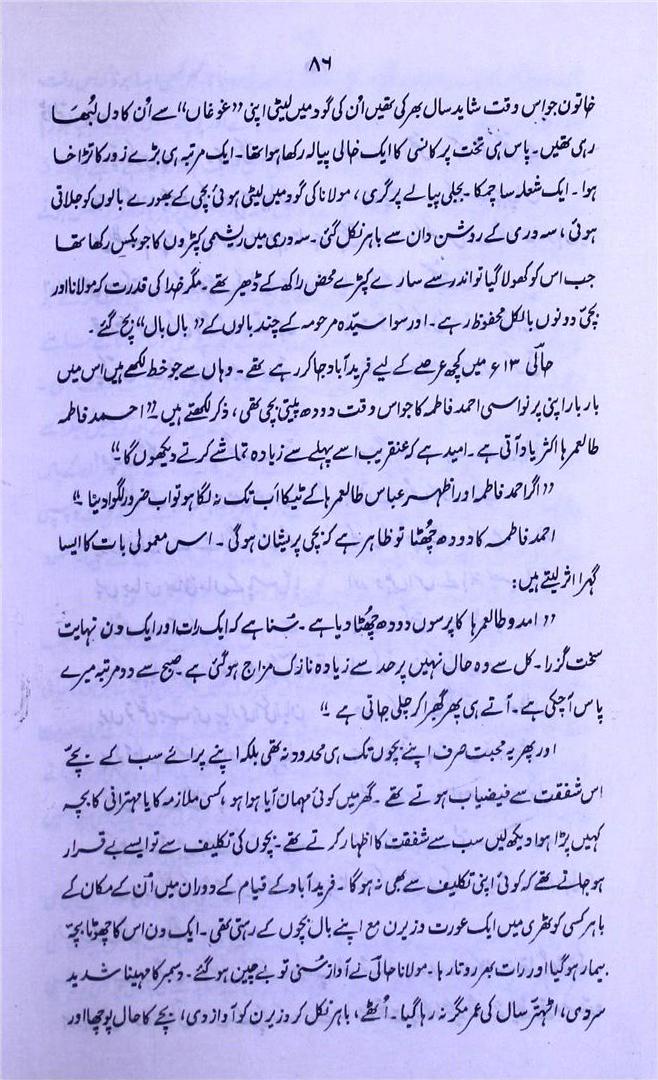 ۸۶
خاتون جو اس وقت شاید سال بھر کی تھیں اُن کی گود میں لیٹی اپنی ”غوغاں“ سے اُن کا دل لُبھا
رہی تھیں۔ پاس ہی تخت پر کانسی کا ایک خالی پیالہ رکھا ہوا تھا۔ ایک مرتبہ ہی بڑے زور کا تڑاخا
ہوا۔ ایک شعلہ سا چمکا۔ بجلی پیالے پر گری، مولانا کی گود میں لیٹی ہوئی بچی کے بھورے بالوں کو جلاتی
ہوئی، سہ دری کے روشن دان سے باہر نکل گئی۔ سہ دری میں ریشمی کپڑوں کا جو بکس رکھا تھا
جب اس کو کھولا گیا تو اندر سے سارے کپڑے محض راکھ کے ڈھیر تھے۔ مگر خدا کی قدرت کہ مولانا اور
بچی دونوں بالکل محفوظ رہے۔ اور سوا سیّدہ مرحومہ کے چند بالوں کے ”بال بال“ بچ گئے۔
حالؔی ۱۳ء میں کچھ عرصے کے لیے فریدآباد جا کر رہے تھے۔ وہاں سے جو خط لکھے ہیں اس میں
بار بار اپنی پرنواسی احمد فاطمہ کا جو اس وقت دودھ پیتی بچی تھی، ذکر لکھتے ہیں ”احمد فاطمہ
طالعمرہا اکثر یاد آتی ہے۔ امید ہے کہ عنقریب اسے پہلے سے زیادہ تماشے کرتے دیکھوں گا“
”اگر احمد فاطمہ اور اظہر عباس طالعمرہا کے ٹیکا اب تک نہ لگا ہو تو اب ضرور لگوا دینا“
احمد فاطمہ کا دودھ چُھٹا تو ظاہر ہے کہ بچی پریشان ہوگی۔ اس معمولی بات کا ایسا
گہرا اثر لیتے ہیں:
”امدو طالعمرہا کا پرسوں دودھ چُھٹا دیا ہے۔ سُنا ہے کہ ایک رات اور ایک دن نہایت
سخت گزرا۔ کل سے وہ حال نہیں پر حد سے زیادہ نازک مزاج ہوگئی ہے۔ صبح سے دو مرتبہ میرے
پاس آ چکی ہے۔ آتے ہی پھر گھبرا کر چلی جاتی ہے“
اور پھر یہ محبت صرف اپنے بچوں تک ہی محدود نہ تھی بلکہ اپنے پرائے سب کے بچے
اس شفقت سے فیضیاب ہوتے تھے۔ گھر میں کوئی مہمان آیا ہوا ہو، کسی ملازمہ کا یا مہترانی کا بچہ
کہیں پڑا ہوا دیکھ لیں سب سے شفقت کا اظہار کرتے تھے۔ بچوں کی تکلیف سے تو ایسے بے قرار
ہو جاتے تھے کہ کوئی اپنی تکلیف سے بھی نہ ہوگا۔ فریدآباد کے قیام کے دوران میں اُن کے مکان کے
باہر کسی کوٹھری میں ایک عورت وزیرن مع اپنے بال بچوں کے رہتی تھی۔ ایک دن اس کا چھوٹا بچّہ
بیمار ہوگیا اور رات بھر روتا رہا۔ مولانا حالؔی نے آواز سُنی تو بے چین ہوگئے۔ دسمبر کا مہینا شدید
سردی، اٹھہتّر سال کی عمر مگر نہ رہا گیا۔ اُٹھے، باہر نکل کر وزیرن کو آواز دی، بچے کا حال پوچھا اور